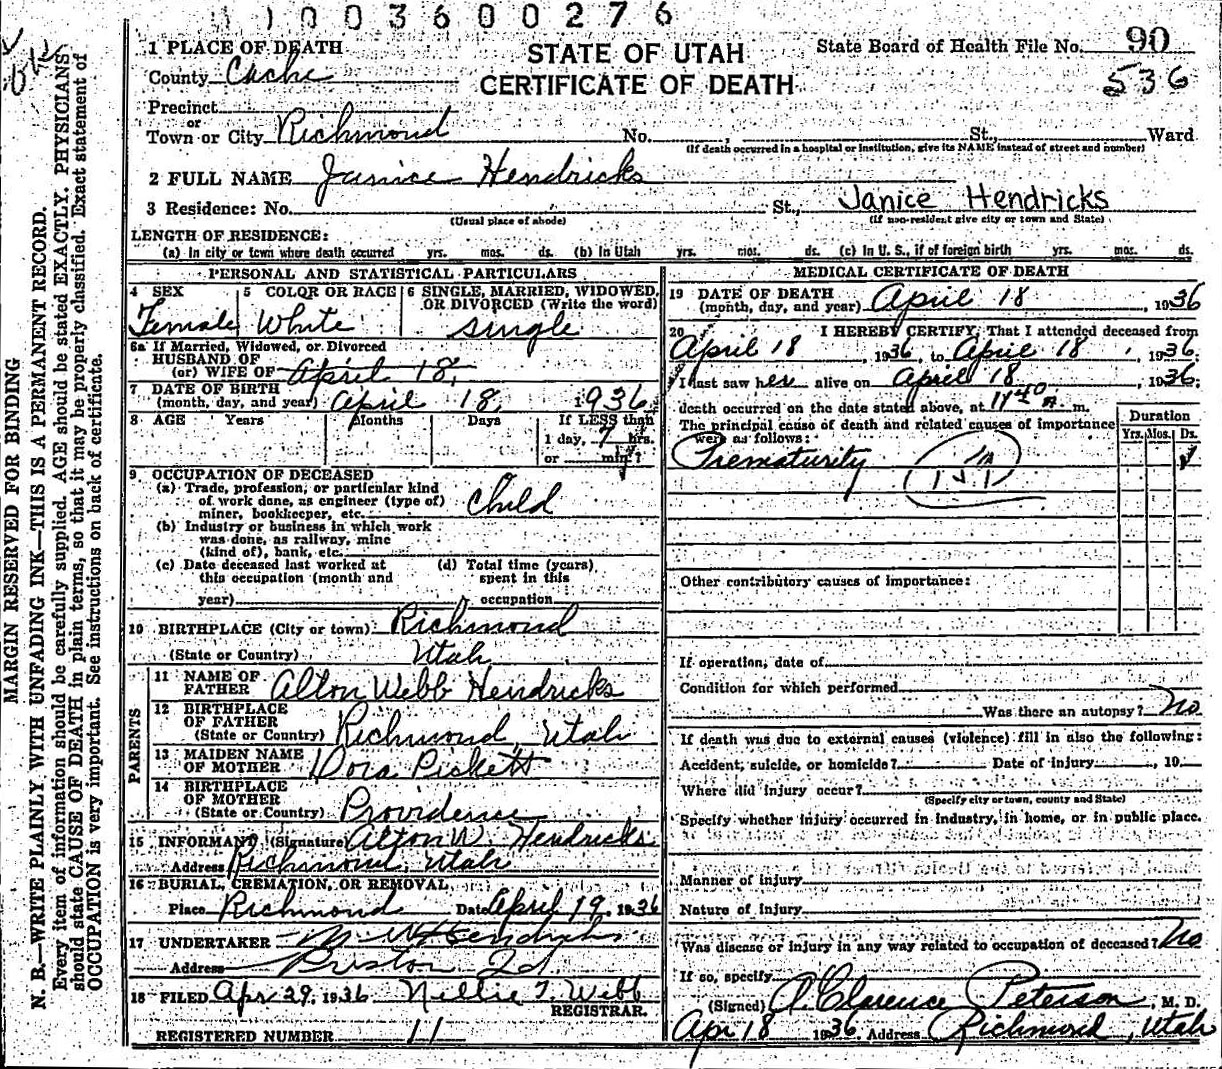 1003600276
1 PLACE OF DEATH
STATE OF UTAH
CERTIFICATE OF DEATH
State Board of Health File No. 90
536
County Cache
Precinct
or
Town or City Richmond No. , St., Ward
(If death occurred in a hospital or institution, give its NAME instead of street and number)
2 FULL NAME Janice Hendricks
3 Residence: No. St., Janice Hendricks
(Usual place of abode) (If non-resident give city or town and State)
LENGTH OF RESIDENCE:
(a) In city or town where death occurred yrs. mos. ds. (b) In Utah yrs. mos. ds. (c) In U. S., if of foreign birth yrs. mos. ds.
PERSONAL AND STATISTICAL PARTICULARS
4 SEX Female
5 COLOR OR RACE White
6 SINGLE, MARRIED, WIDOWED, OR DIVORCED (Write the word) single
6a If Married, Widowed, or Divorced
HUSBAND OF
(or) WIFE OF April 18,
7 DATE OF BIRTH
(month, day, and year) April 18, 1936
8 AGE Years Months Days If LESS than
1 day, 7 hrs.
or min.?
9 OCCUPATION OF DECEASED
(a) Trade, profession, or particular kind
of work done, as engineer (type of)
miner, bookkeeper, etc. Child
(b) Industry or business in which work
was done, as railway, mine
(kind of), bank, etc.
(c) Date deceased last worked at
this occupation (month and
year)
(d) Total time (years)
spent in this
occupation
10 BIRTHPLACE (City or town) Richmond
(State or Country) Utah
PARENTS
11 NAME OF
FATHER Alton Webb Hendricks
12 BIRTHPLACE
OF FATHER
(State or Country) Richmond, Utah
13 MAIDEN NAME
OF MOTHER Dora Pickett
14 BIRTHPLACE
OF MOTHER
(State or Country) Providence
15 INFORMANT (Signature) Alton W. Hendricks
Address Richmond, Utah
16 BURIAL, CREMATION, OR REMOVAL
Place Richmond Date April 19, 1936
17 UNDERTAKER Hendricks
Address Preston Id
18 FILED Apr 29, 1936 Nellie T. Webb
REGISTRAR.
REGISTERED NUMBER 11
MEDICAL CERTIFICATE OF DEATH
19 DATE OF DEATH
(month, day, and year) April 18, 1936
20 I HEREBY CERTIFY, That I attended deceased from
April 18, 1936, to April 18, 1936;
I last saw her alive on April 18, 1936;
death occurred on the date stated above, at 11 40 A m.
The principal cause of death and related causes of importance
were as follows:
Duration
Yrs. Mos. Ds.
Prematurity
Other contributory causes of importance:
If operation, date of
Condition for which performed
Was there an autopsy? No
If death was due to external causes (violence) fill in also the following:
Accident, suicide, or homicide? Date of injury , 19
Where did injury occur?
(Specify city or town, county and State)
Specify whether injury occurred in industry, in home, or in public place.
Manner of injury
Nature of injury
Was disease or injury in any way related to occupation of deceased? No
If so, specify
(Signed) A. Clarence Peterson, M. D.
Apr 18 1936 Address Richmond, Utah
MARGIN RESERVED FOR BINDING
N. B.—WRITE PLAINLY WITH UNFADING INK—THIS IS A PERMANENT RECORD.
Every item of information should be carefully supplied. AGE should be stated EXACTLY. PHYSICIANS
should state CAUSE OF DEATH in plain terms, so that it may be properly classified. Exact statement of
OCCUPATION is very important. See instructions on back of certificate.